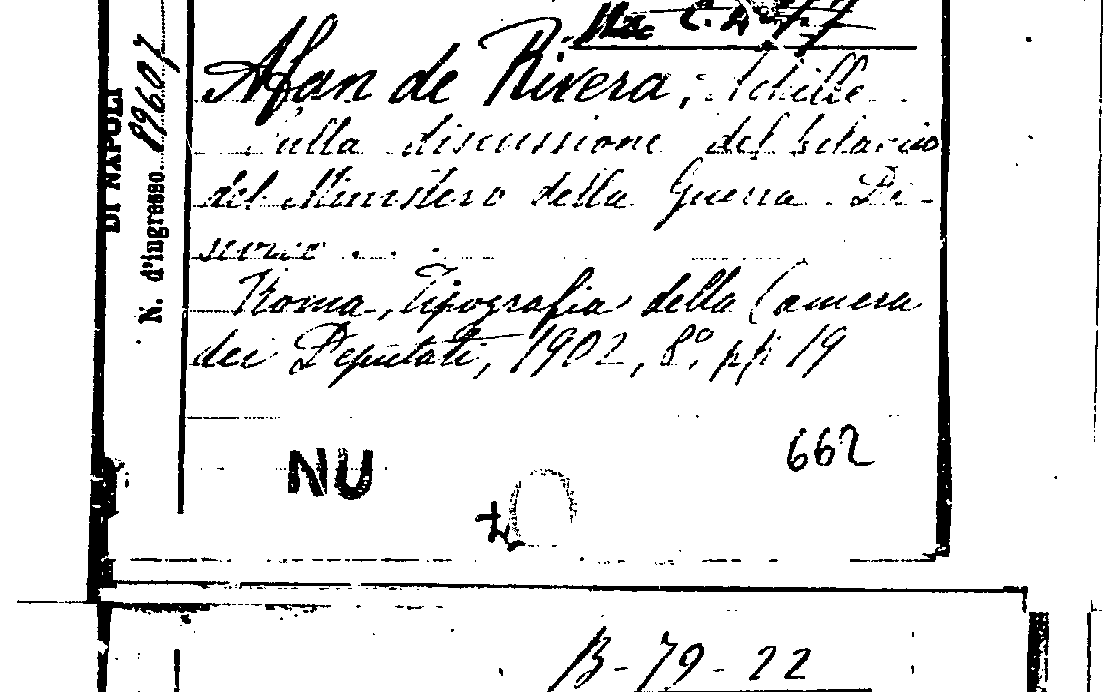 DI NAPOLI
N. d'ingresso. 89607
Afan de Rivera, Achille
Sulla discussione del bilancio
del Ministero della Guerra. Di-
scorso . . .
Roma, Tipografia della Camera
dei Deputati, 1902, 8º, pp 19
662
NU
B-79-22